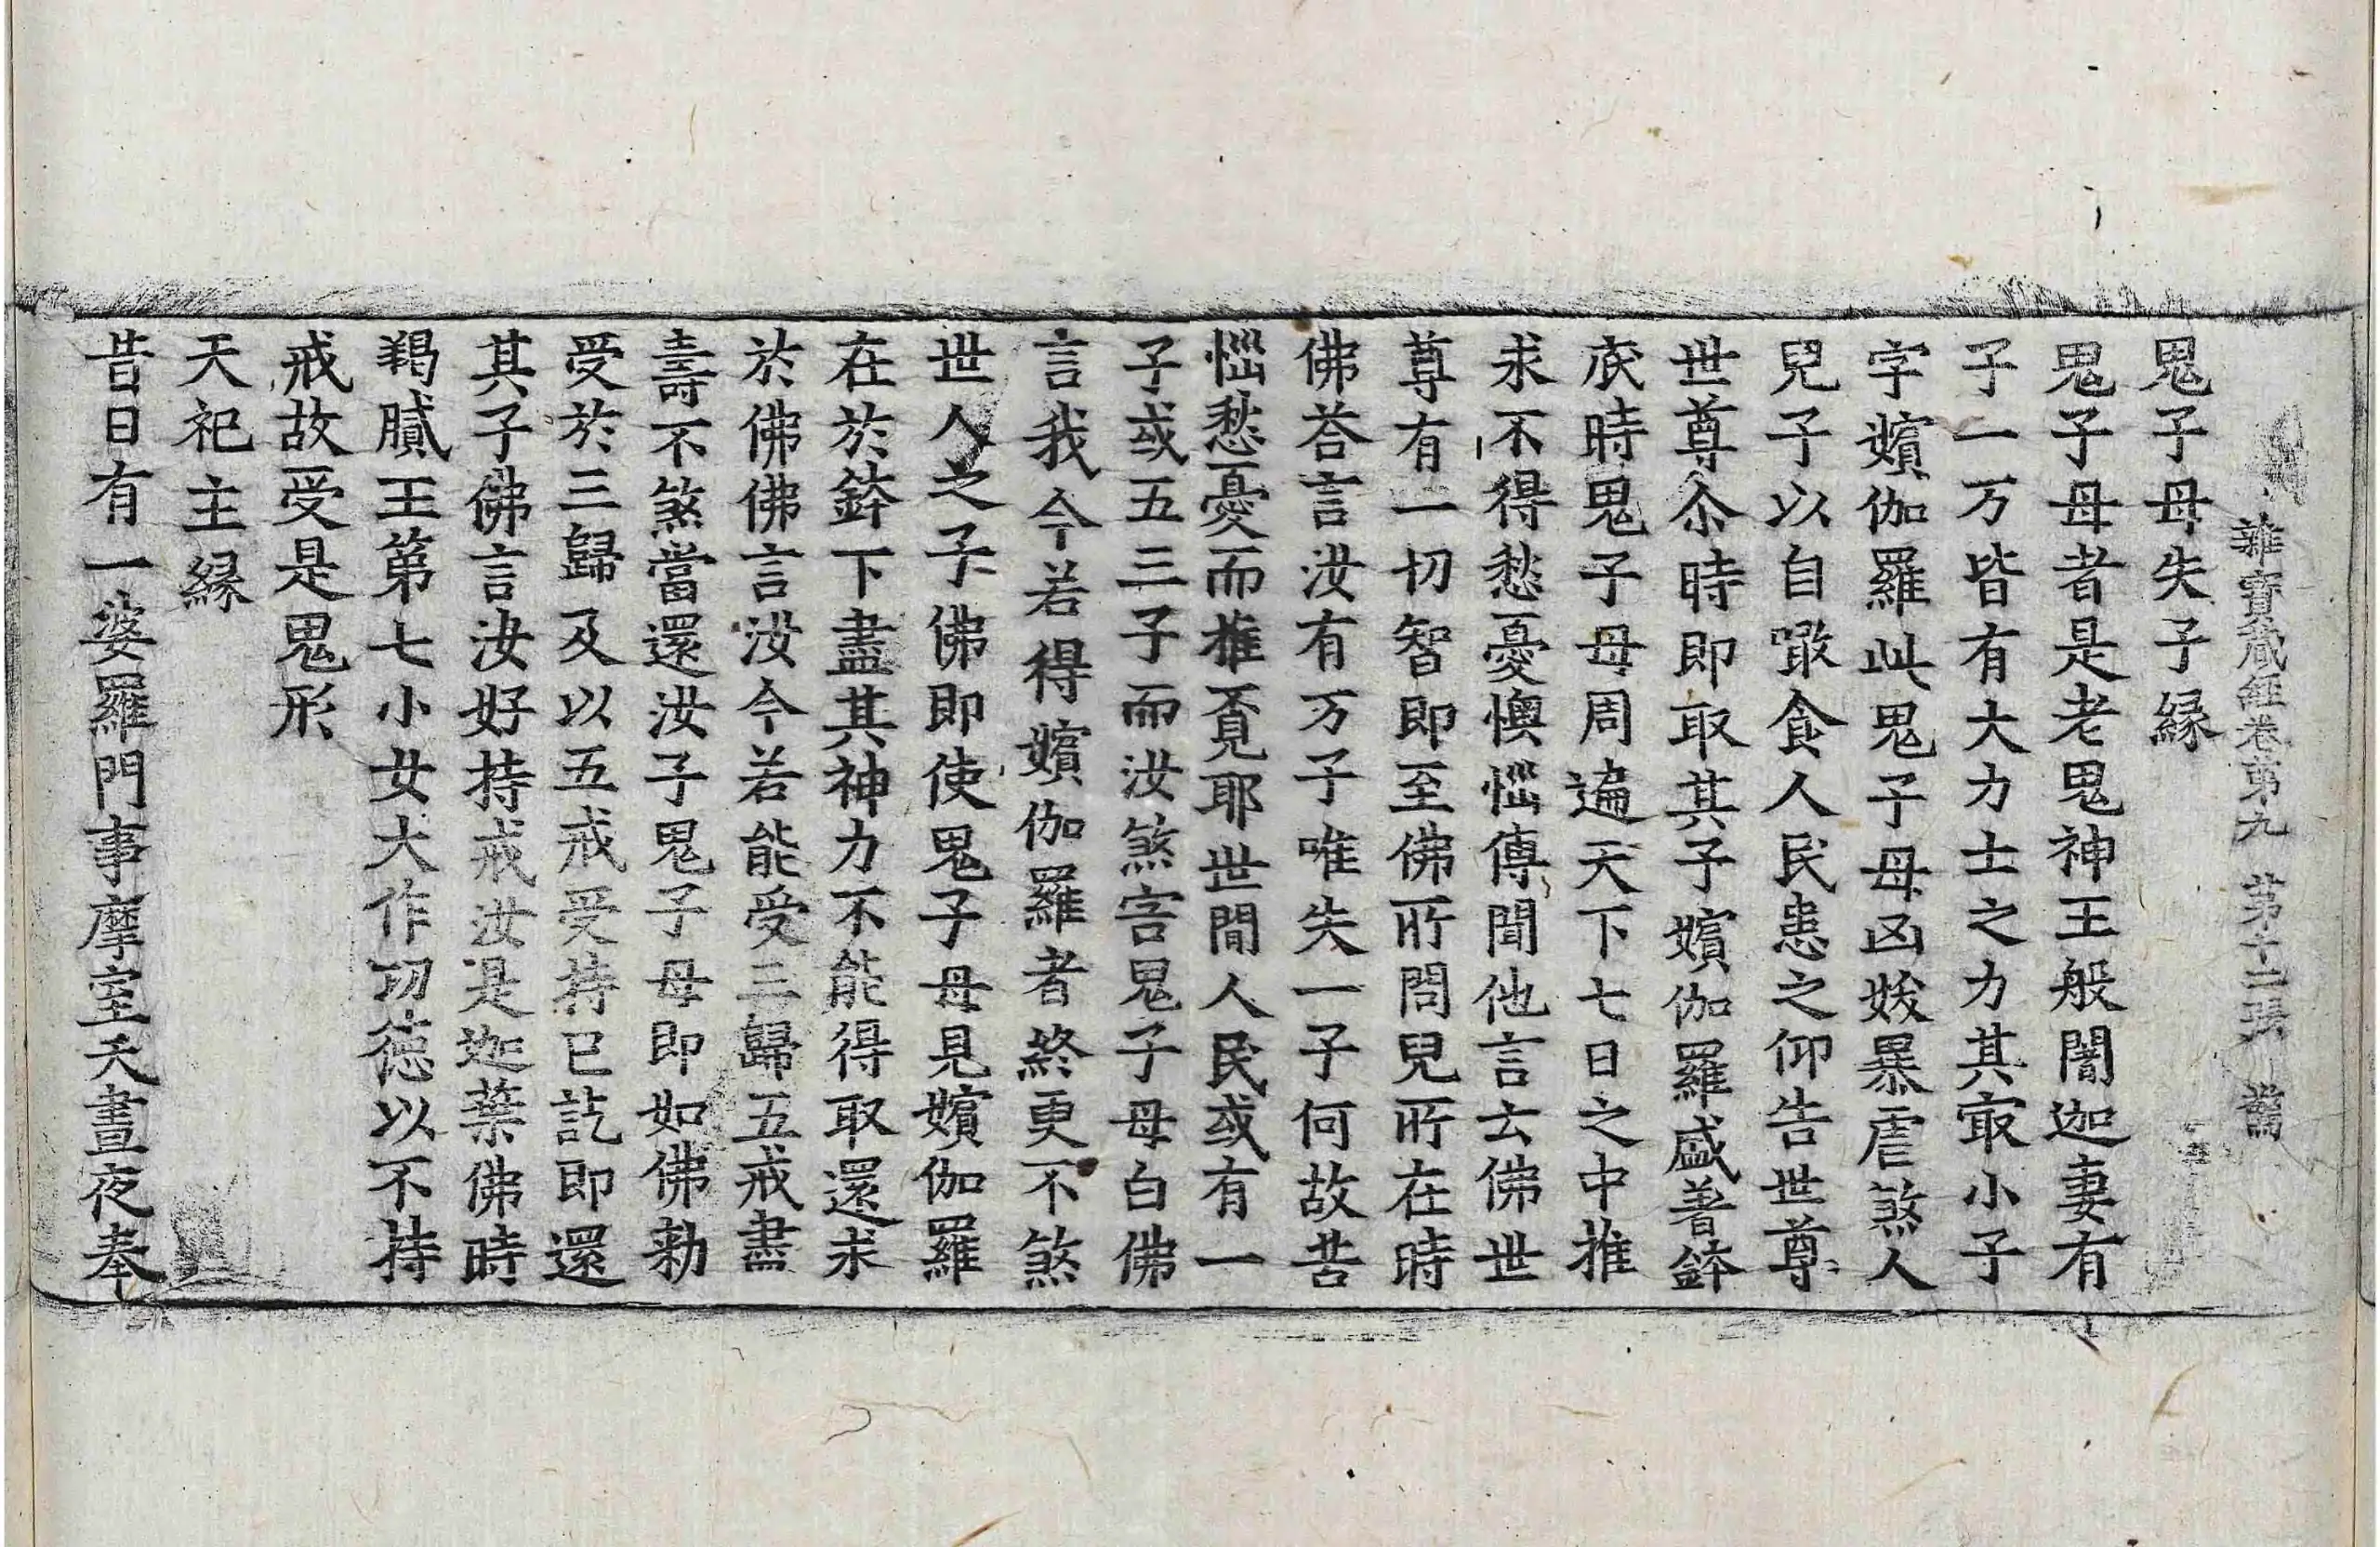 雜寶藏經卷第九 第十二張 舊
鬼子母失子緣
鬼子母者是老鬼神王般闍迦妻有
子一万皆有大力士之力其冣小子
字嬪伽羅此鬼子母凶妭暴虐煞人
兒子以自噉食人民患之仰告世尊
世尊尒時即取其子嬪伽羅盛著鉢
底時鬼子母周遍天下七日之中推
求不得愁憂懊惱傳聞他言云佛世
尊有一切智即至佛所問兒所在時
佛荅言汝有万子唯失一子何故苦
惱愁憂而推覓耶世間人民或有一
子或五三子而汝煞害鬼子母白佛
言我今若得嬪伽羅者終更不煞
世人之子佛即使鬼子母見嬪伽羅
在於鉢下盡其神力不能得取還求
於佛佛言汝今若能受三歸五戒盡
壽不煞當還汝子鬼子母即如佛勑
受於三歸及以五戒受持已訖即還
其子佛言汝好持戒汝是迦葉佛時
羯膩王第七小女大作功德以不持
戒故受是鬼形
天祀主緣
昔日有一婆羅門事摩室天晝夜奉